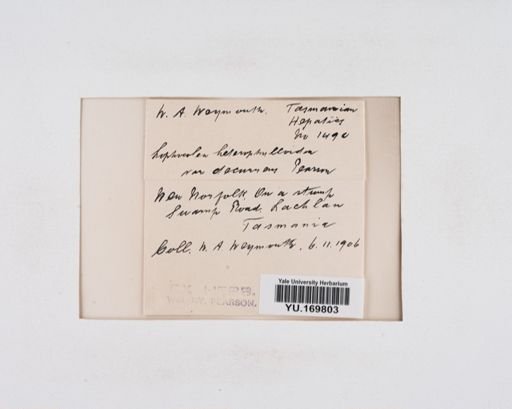 W. A. Weymouth. Tasmanian
Hepatics
No 1490
Lophocolea heterophylloides
var decurrens Pearson
New Norfolk On a stump
Swamp Road, Lachlan
Tasmania
Coll. W. A. Weymouth, 6.11.1906
PEARSON.
Yale University Herbarium
YU.169803